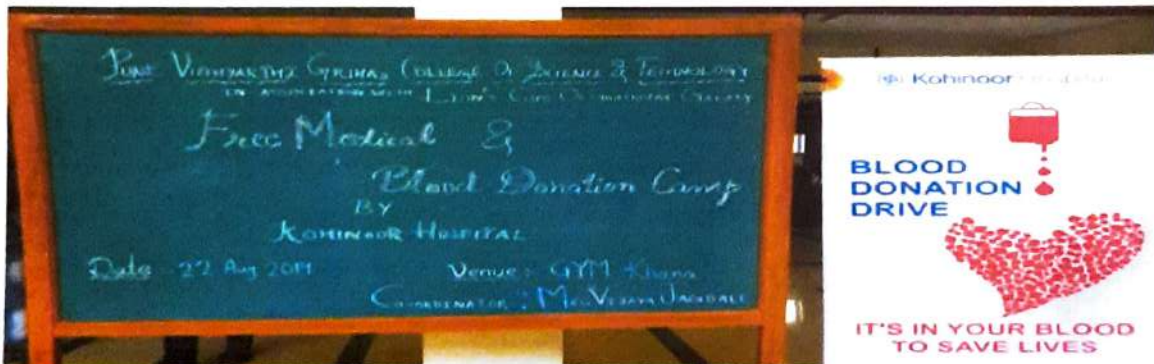 Pune Vidhyarthi Griha's College Of Science & Technology
IN ASSOCIATION WITH Lion's Club Of
Free Medical &
Blood Donation Camp
BY
KOHINOOR HOSPITAL
Date - 22 Aug 2019
Venue: GYM Khana
Co-ordinator : Mrs Vijaya Jagdale
Kohinoor
BLOOD
DONATION
DRIVE
IT'S IN YOUR BLOOD
TO SAVE LIVES